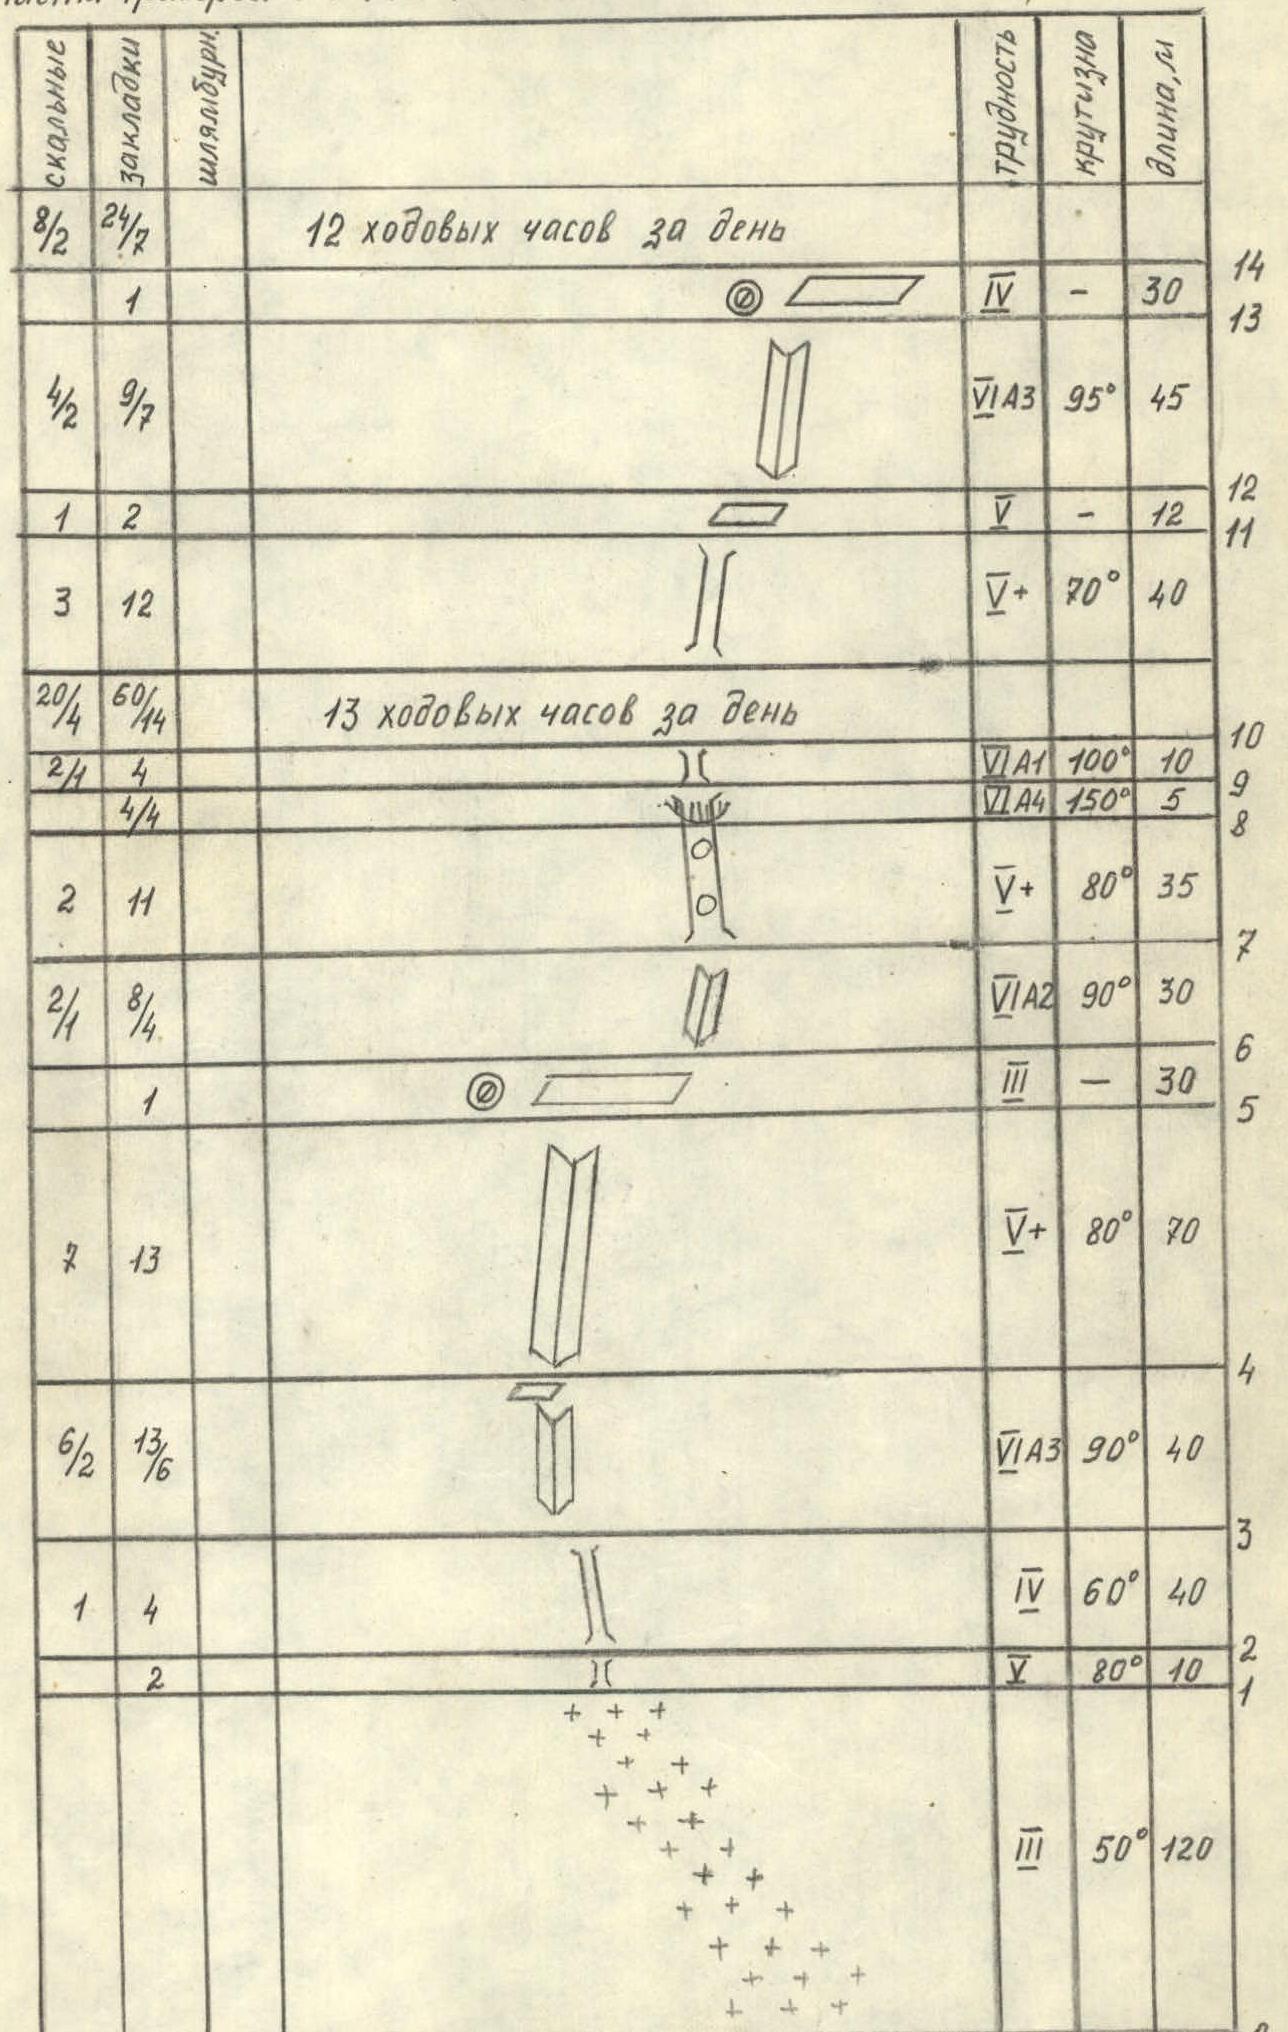 скальные закладки шлямбурн. трудность крутизна длина, м
8/2 24/7 12 ходовых часов за день
14
1 IV - 30
13
4/2 9/7 VI A3 95° 45
12
1 2 V - 12
11
3 12 V+ 70° 40
20/4 60/14 13 ходовых часов за день
10
2/1 4 VI A1 100° 10
9
4/4 VI A4 150° 5
8
2 11 V+ 80° 35
7
2/1 8/4 VI A2 90° 30
6
1 III - 30
5
7 13 V+ 80° 70
4
6/2 13/6 VI A3 90° 40
3
1 4 IV 60° 40
2
2 V 80° 10
1
III 50° 120